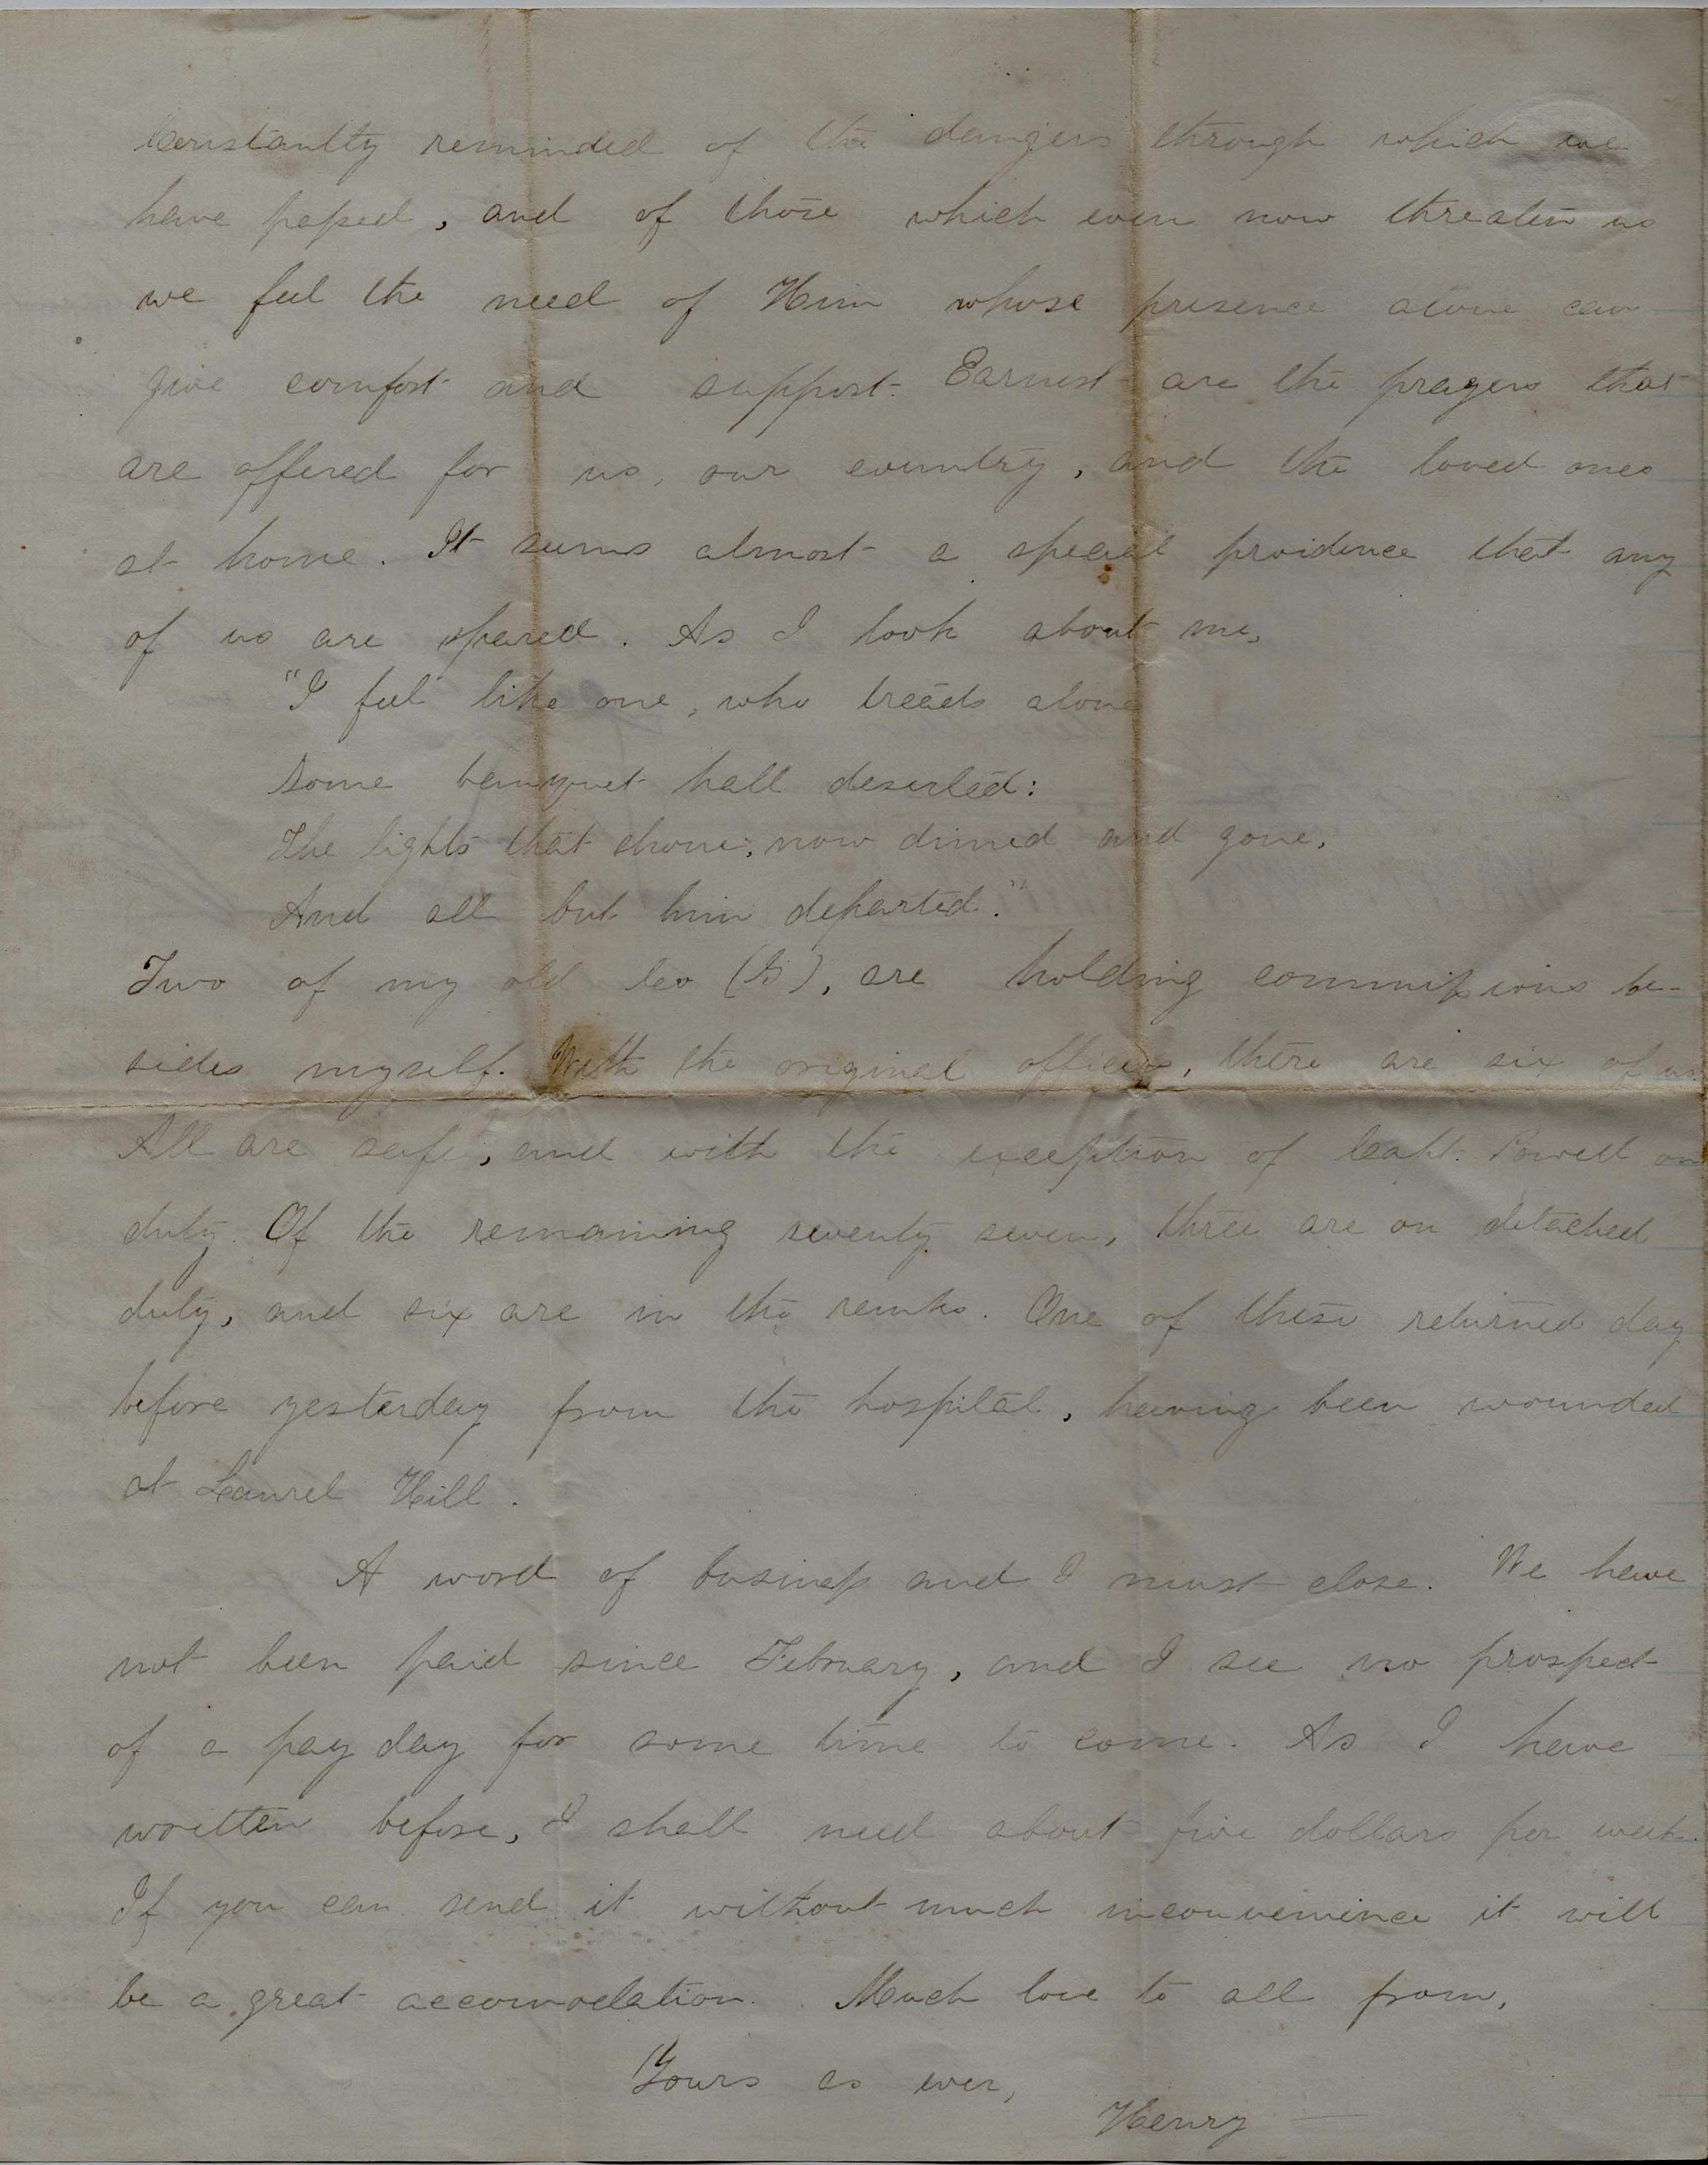 Constantly reminded of the dangers through which we
have passed, and of those which even now threaten us
we feel the need of Him whose presence alone can
give comfort and support. Earnest are the prayers that
are offered for us, our country, and the loved ones
at home. It seems almost a special providence that any
of us are spared. As I look about me,
"I feel like one, who treads alone
Some banquet hall deserted:
The lights that shone, now dimed and gone,
And all but him departed."
Two of my old Co (G), are holding commissions be-
sides myself. With the original officers, there are six of us
All are safe, and with the exception of Capt. Powell on
duty. Of the remaining seventy seven, three are on detached
duty, and six are in the ranks. One of these returned day
before yesterday from the hospital, having been wounded
at Laurel Hill.
A word of business and I must close. We have
not been paid since February, and I see no prospect
of a pay day for some time to come. As I have
written before, I shall need about five dollars per week.
If you can send it without much inconvenience it will
be a great accomodation. Much love to all from,
Yours as ever,
Henry